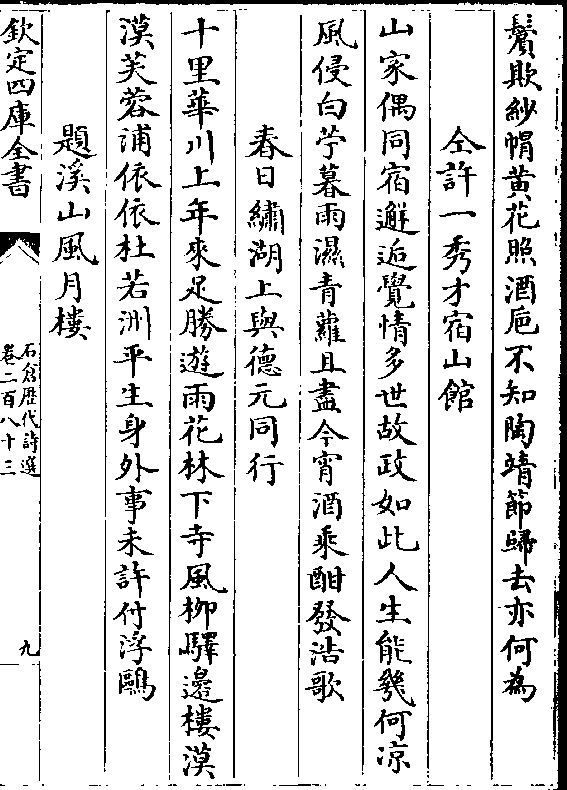 鬢欺紗帽黄花照酒巵不知陶靖節歸去亦何為
仝許一秀才宿山館
山家偶同宿邂逅覺情多世故政如此人生能幾何凉
風侵白苧暮雨濕青蘿且盡今宵酒乘酣發浩歌
春日繡湖上與德元同行
十里華川上年來足勝遊雨花林下寺風柳驛邊樓漠
漠芙蓉浦依依杜若洲平生身外事未許付浮鷗
題溪山風月樓
欽定四庫全書
石倉歴代詩選
卷二百八十三
九